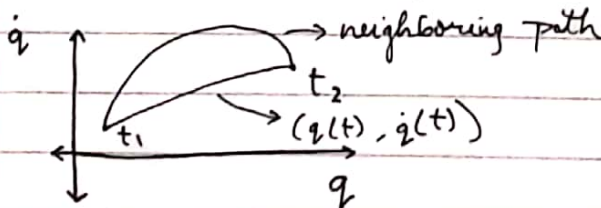 q̇
neighboring path
t₂
t₁
(q(t), q̇(t))
q